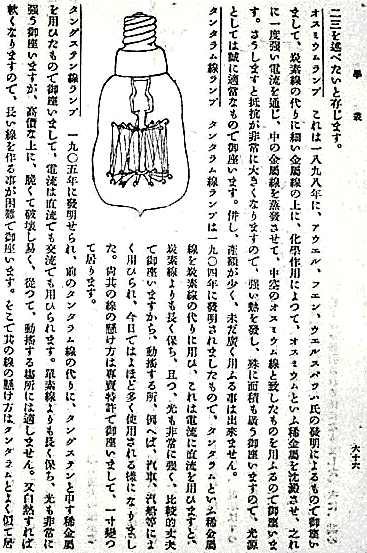 學 叢
六十六
二三を述べたいと存じます。
オスミウムランプ これは一八九八年に、アウエル、フエン、ウエルスバツハ氏の發明によるもので御座い
まして、炭素線の代りに細い金屬線の上に、化學作用によつて、オスミウムといふ稀金屬を沈澱させ、之れ
に一度强い電流を通じ、中の金屬線を蒸發させて、中空のオスミウム線と致したものを用ふるので御座いま
す。さうしますと抵抗が非常に大きくなりますので、强い熱を發し、殊に面積も廣う御座いますので、光源
としては誠に適當なもので御座います。併し、產額が少く、未だ廣く用ふる事は出來ません。
タンタラム線ランプ タンタラム線ランプは一九〇四年に發明されましたもので、タンタラムといふ稀金屬
線を炭素線の代りに用ひ、これは電流に直流を用ひますと、
炭素線よりも長く保ち、且つ、光も非常に强く、比較的丈夫
で御座いますから、動搖する所、例へば、汽車、汽船等によ
く用ひられ、今日ではよほど多く使用される樣になりまし
た。尙其の線の懸け方は專賣特許で御座いまして、一寸變つ
て居ります。
タングステン線ランプ 一九〇五年に發明せられ、前のタンタラム線の代りに、タングステンと申す稀金屬
を用ひたもので御座いまして、電流は直流でも交流でも用ひられます。單素線よりも長く保ち、光も非常に
强う御座いますが、高價な上に、脆くて破壞し易く、從つて、動搖する場所には適しません。又白熱すれば
軟くなりますので、長い線を作る事が困難で御座います。そこで其の線の懸け方はタンタラムとよく似て居